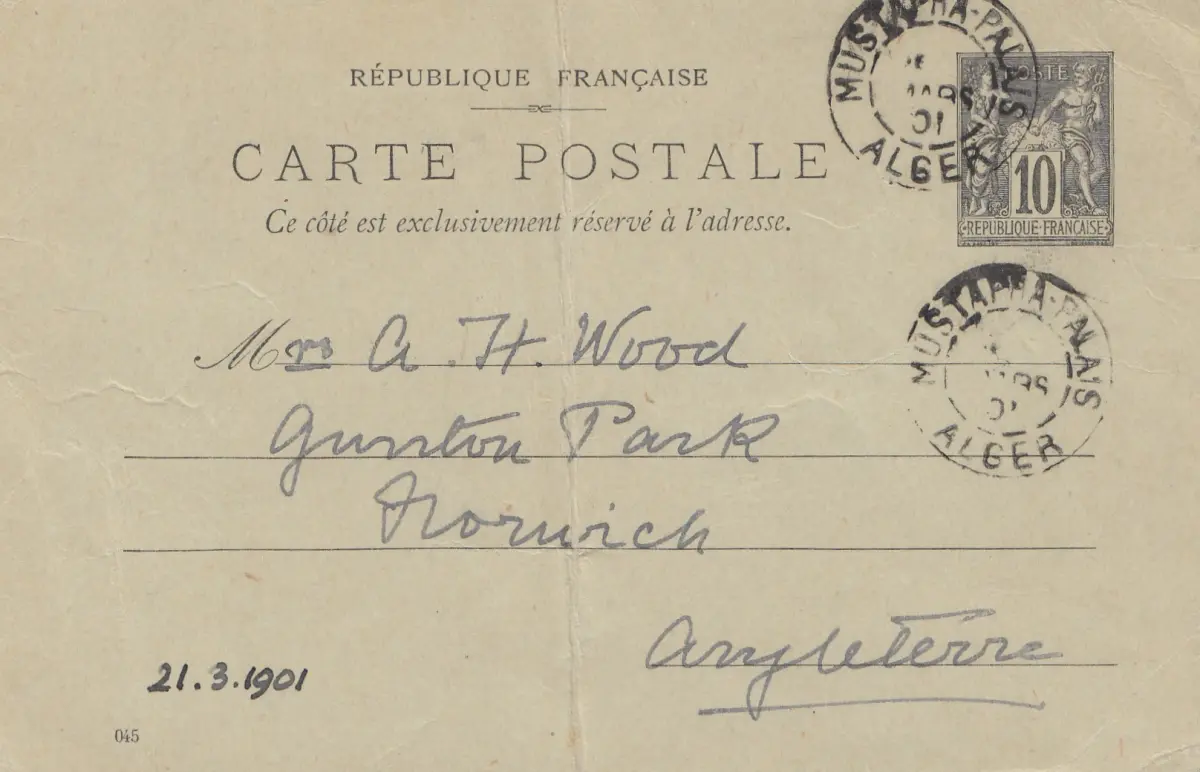 RÉPUBLIQUE FRANÇAISE
CARTE POSTALE
Ce côté est exclusivement réservé à l'adresse.
MUSTAPHA-PALAIS
MARS
01
ALGER
POSTE
10
REPUBLIQUE FRANÇAISE
MUSTAPHA-PALAIS
MARS
01
ALGER
Mrs A. H. Wood
Gunton Park
Norwich
Angleterre
21.3.1901
045